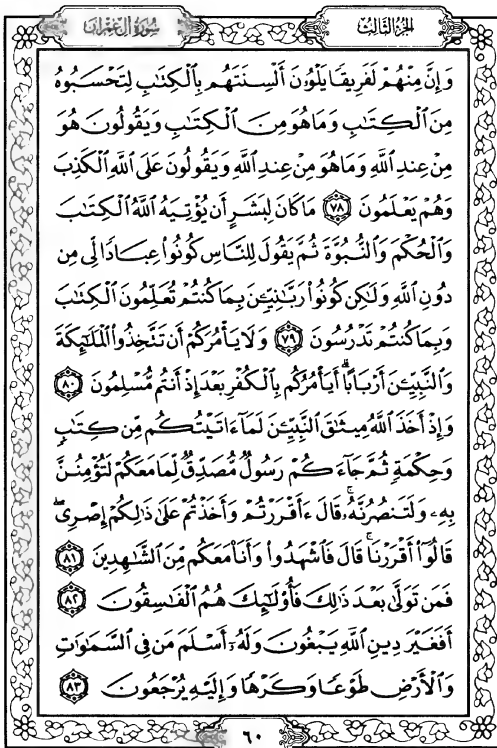 سُورَةُ آلِ عِمْرَانَ
الجُزْءُ الثَّالِثُ
وَإِنَّ مِنْهُمْ لَفَرِيقًا يَلْوُۥنَ أَلْسِنَتَهُم بِٱلْكِتَٰبِ لِتَحْسَبُوهُ
مِنَ ٱلْكِتَٰبِ وَمَا هُوَ مِنَ ٱلْكِتَٰبِ وَيَقُولُونَ هُوَ
مِنْ عِندِ ٱللَّهِ وَمَا هُوَ مِنْ عِندِ ٱللَّهِ وَيَقُولُونَ عَلَى ٱللَّهِ ٱلْكَذِبَ
وَهُمْ يَعْلَمُونَ ٧٨ مَا كَانَ لِبَشَرٍ أَن يُؤْتِيَهُ ٱللَّهُ ٱلْكِتَٰبَ
وَٱلْحُكْمَ وَٱلنُّبُوَّةَ ثُمَّ يَقُولَ لِلنَّاسِ كُونُوا۟ عِبَادًا لِّى مِن
دُونِ ٱللَّهِ وَلَٰكِن كُونُوا۟ رَبَّٰنِيِّـۧنَ بِمَا كُنتُمْ تُعَلِّمُونَ ٱلْكِتَٰبَ
وَبِمَا كُنتُمْ تَدْرُسُونَ ٧٩ وَلَا يَأْمُرَكُمْ أَن تَتَّخِذُوا۟ ٱلْمَلَٰٓئِكَةَ
وَٱلنَّبِيِّـۧنَ أَرْبَابًا ۗ أَيَأْمُرُكُم بِٱلْكُفْرِ بَعْدَ إِذْ أَنتُم مُّسْلِمُونَ ٨٠
وَإِذْ أَخَذَ ٱللَّهُ مِيثَٰقَ ٱلنَّبِيِّـۧنَ لَمَآ ءَاتَيْتُكُم مِّن كِتَٰبٍ
وَحِكْمَةٍ ثُمَّ جَآءَكُمْ رَسُولٌ مُّصَدِّقٌ لِّمَا مَعَكُمْ لَتُؤْمِنُنَّ
بِهِۦ وَلَتَنصُرُنَّهُۥ ۚ قَالَ ءَأَقْرَرْتُمْ وَأَخَذْتُمْ عَلَىٰ ذَٰلِكُمْ إِصْرِى ۖ
قَالُوٓا۟ أَقْرَرْنَا ۚ قَالَ فَٱشْهَدُوا۟ وَأَنَا۠ مَعَكُم مِّنَ ٱلشَّٰهِدِينَ ٨١
فَمَن تَوَلَّىٰ بَعْدَ ذَٰلِكَ فَأُو۟لَٰٓئِكَ هُمُ ٱلْفَٰسِقُونَ ٨٢
أَفَغَيْرَ دِينِ ٱللَّهِ يَبْغُونَ وَلَهُۥٓ أَسْلَمَ مَن فِى ٱلسَّمَٰوَٰتِ
وَٱلْأَرْضِ طَوْعًا وَكَرْهًا وَإِلَيْهِ يُرْجَعُونَ ٨٣
٦٠